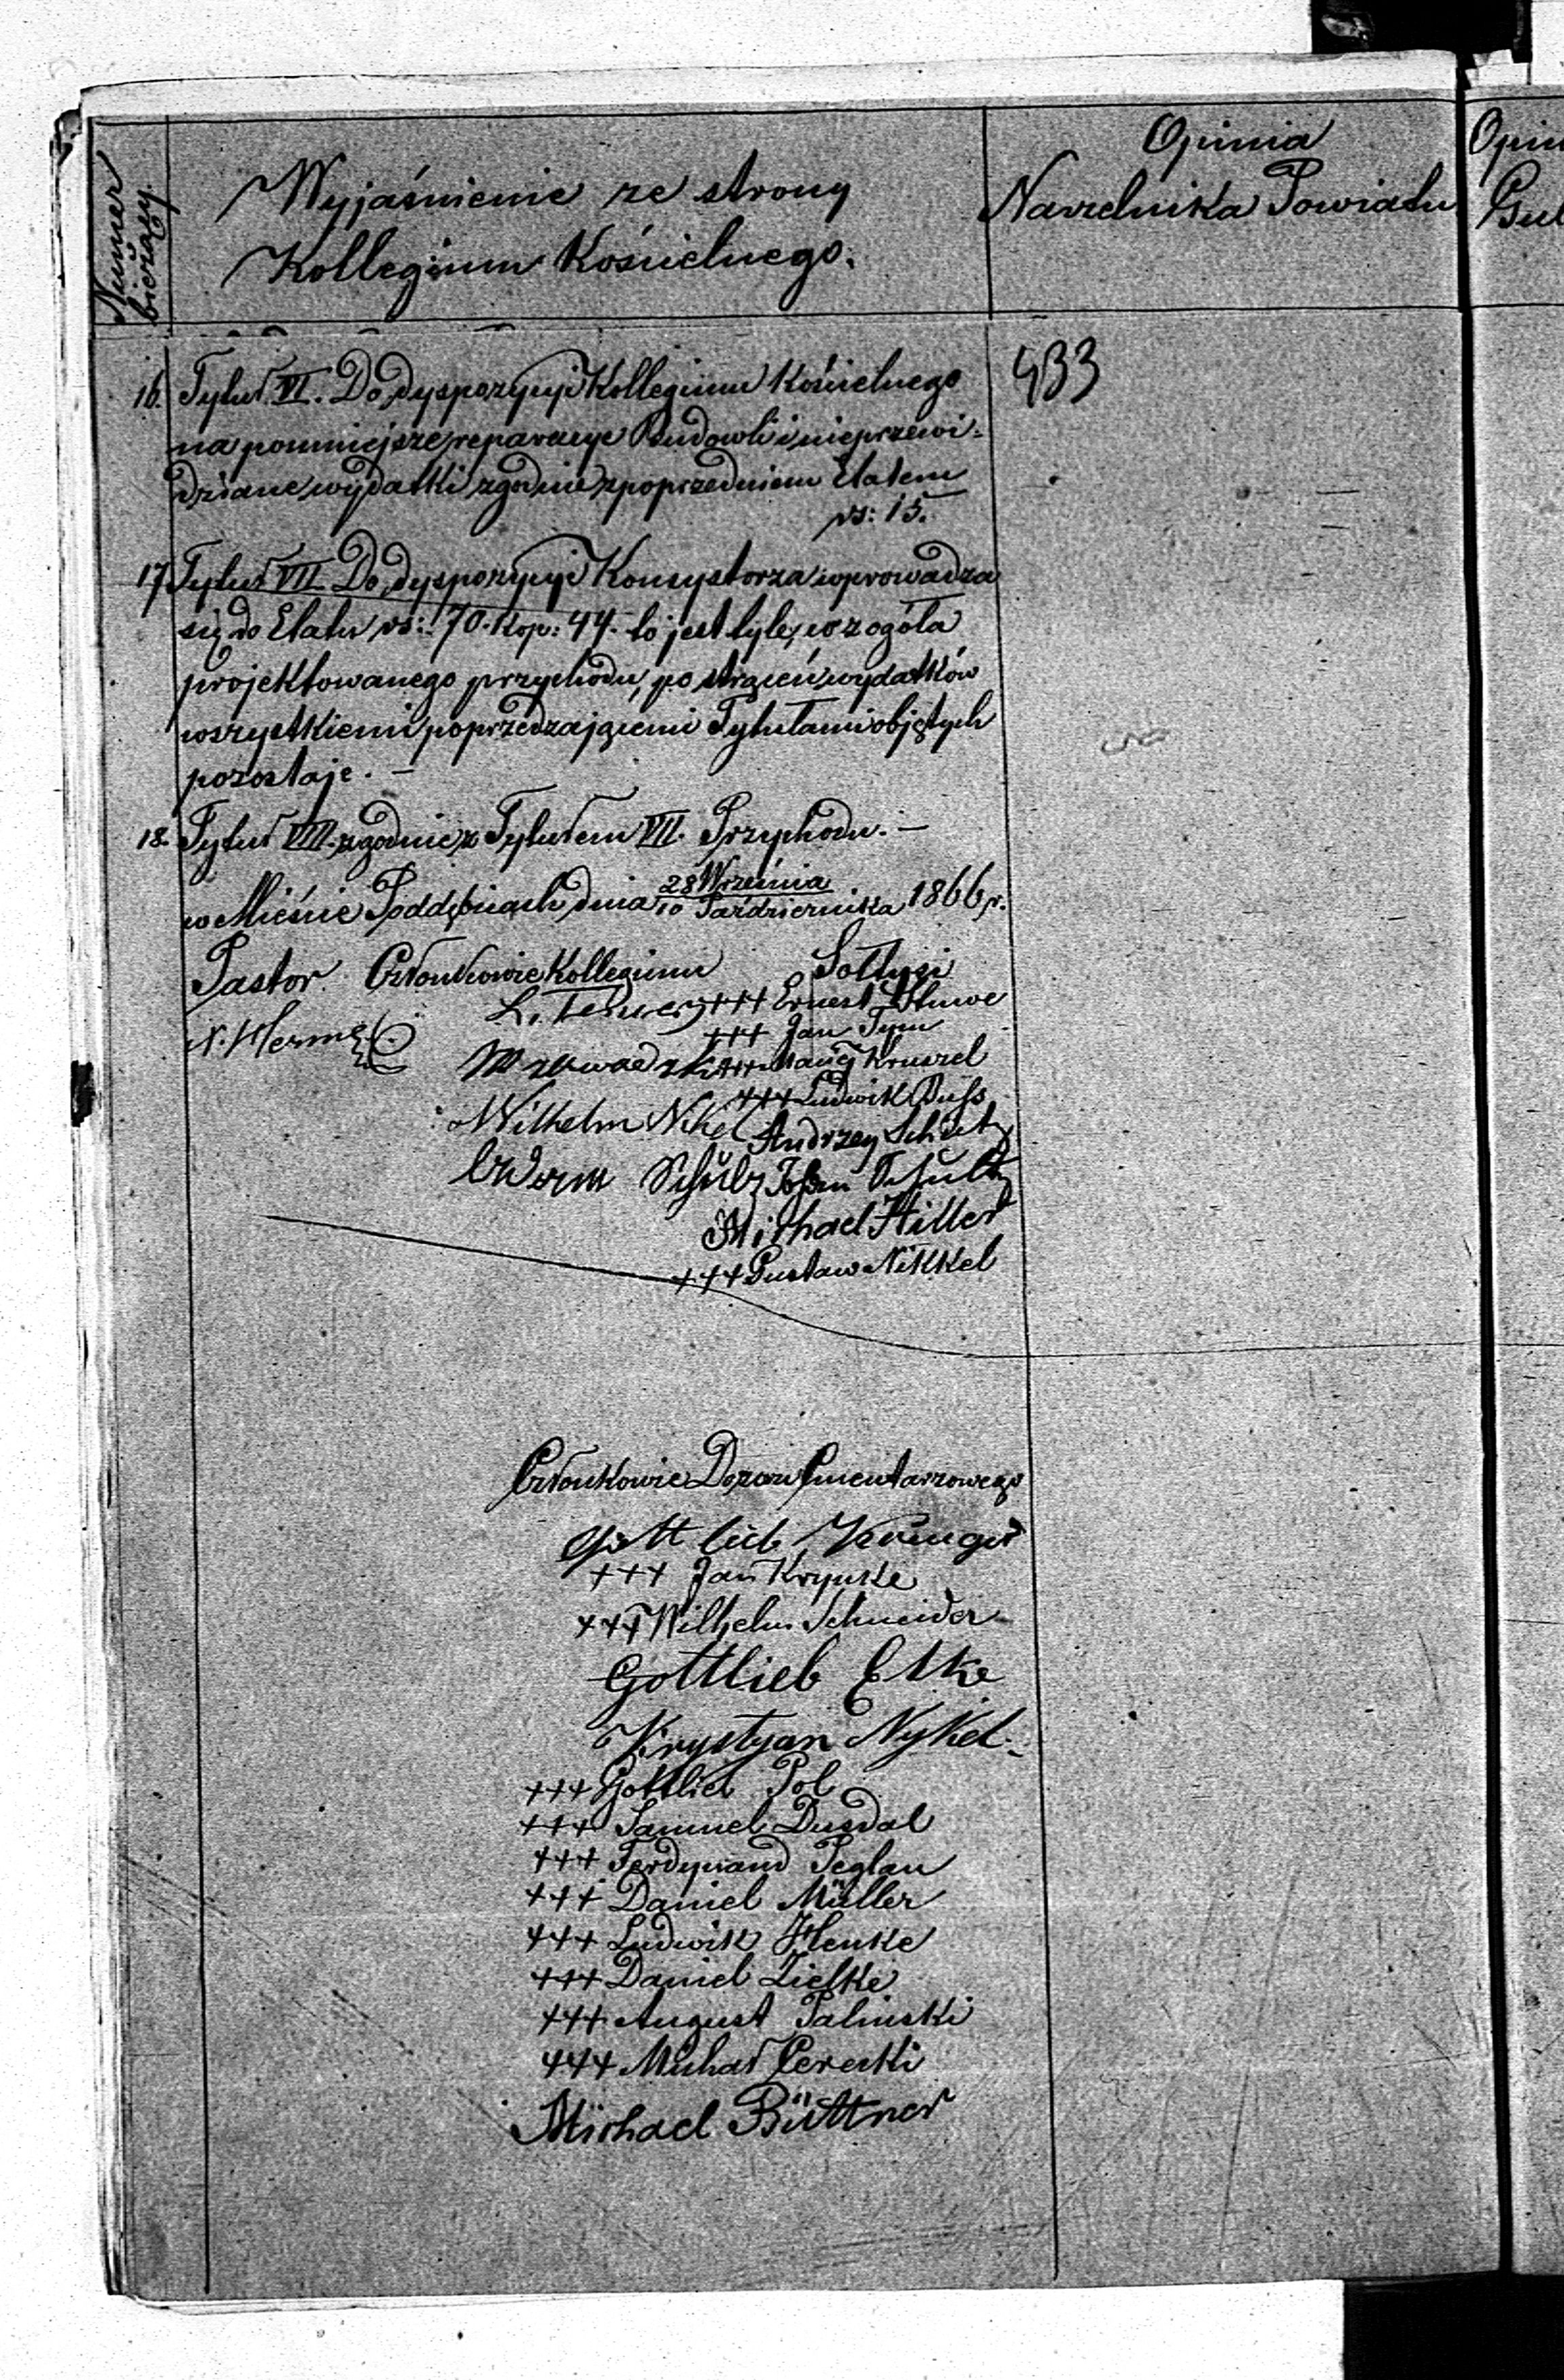 Numer
bieżący.
Wyjaśnienie ze strony
Kollegium Kościelnego.
Opinia
Naczelnika Powiatu
433
16. Tytuł VI. Do dyspozycyi Kollegium Kościelnego
na pomniejsze reparacye Budowli i nieprzewi-
dziane wydatki zgodnie z poprzedniem Etatem
rs: 15.
17. Tytuł VII. Do dyspozycyi Konsystorza wprowadza
się do Etatu rs: 70. kop: 44. to jest tyle, ile z ogóła
projektowanego przychodu, po strąceniu wydatków
wszystkiemi poprzedzającemi Tytułami objętych
pozostaje. —
18. Tytuł VIII. zgodnie z Tytułem VII. Przychodu. —
w Mieście Poddębicach dnia 28 Września / 10 Października 1866 r.
Pastor Członkowie Kollegium Sołtysi
N. Herme
+++ Ernest
+++ Jan Tym
+++ Kruszel
+++ Ludwik Buss
Wilhelm Nikel Andrzey Schultz
Schulz Johan Schultz
Michael Hiller
+++ Gustaw Nikkel
Członkowie Dozoru Cmentarzowego
Gottlieb Krünger
+++ Jan Krynke
+++ Wilhelm Schneider
Gottlieb Elke
Krystyan Nykel.
+++ Gottlieb Pol
+++ Samuel Dusdal
+++ Ferdynand Peglau
+++ Daniel Müller
+++ Ludwik Henke
+++ Daniel Zielke
+++ August Palinski
+++ Michał Cereski
Michael Büttner